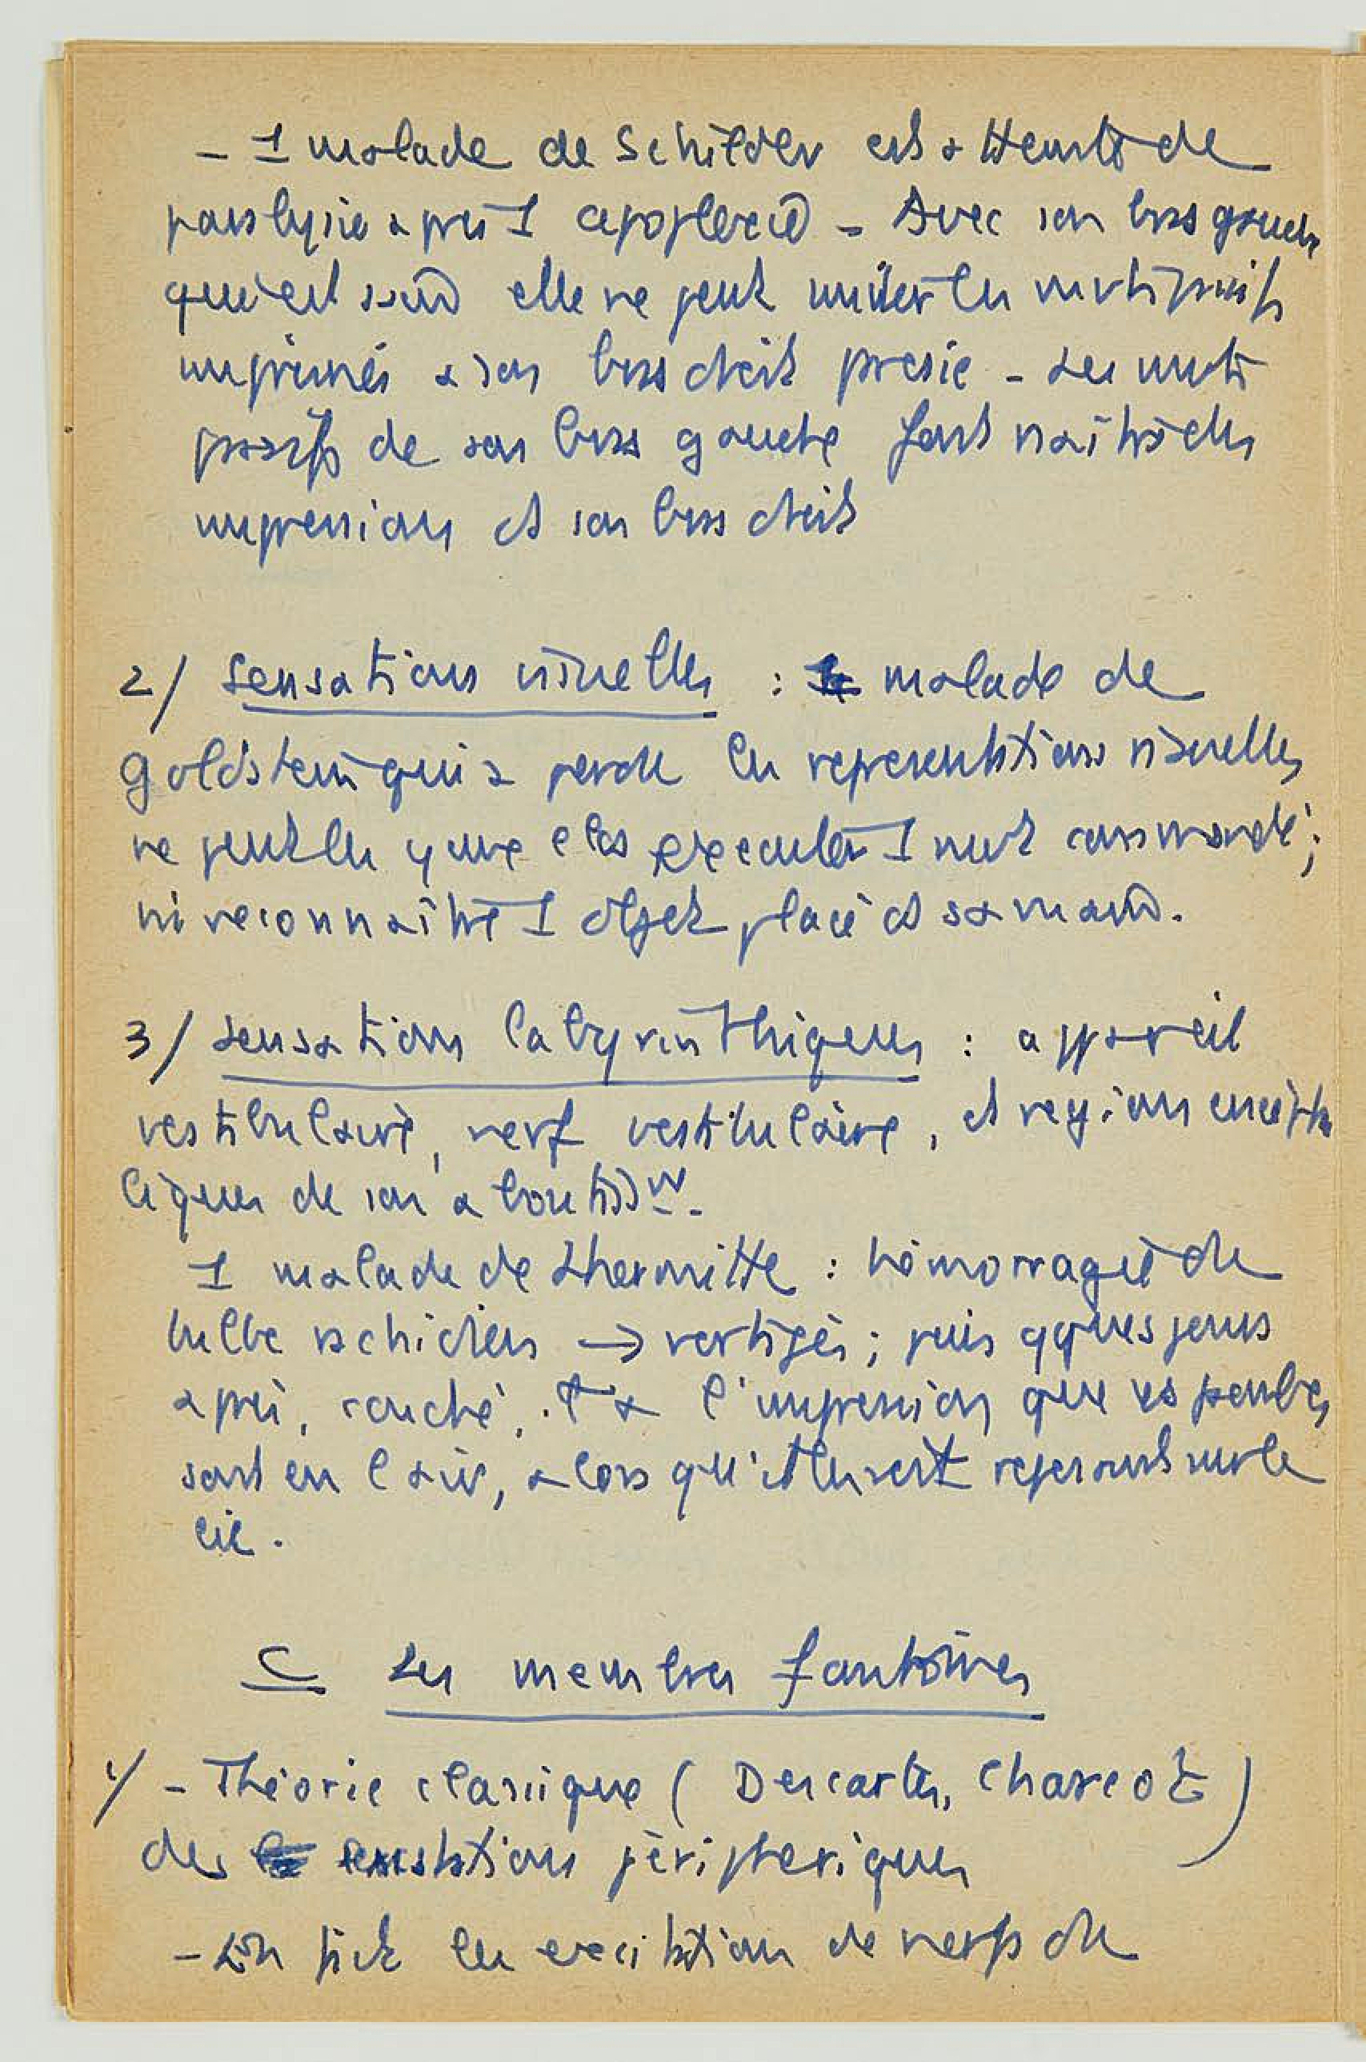 - 1 malade de Schilder est atteinte de
paralysie après 1 apoplexie - Avec son bras gauche
qui est sain elle ne peut imiter les mvts passifs
imprimés à son bras droit - Les mvts
passifs de son bras gauche font naître des
impressions ds son bras droit
2/ Sensations visuelles : malade de
Goldstein qui a perdu les représentations visuelles
ne peut les yeux clos exécuter 1 mvt commandé ;
ni reconnaître 1 objet placé ds sa main.
3/ Sensations labyrinthiques : appareil
vestibulaire, nerf vestibulaire, et régions encépha
liques de son aboutisst.
1 malade de Lhermitte : hémorragie du
bulbe rachidien → vertiges ; puis qques jours
après, couché, il a l'impression que ses jambes
sont en l'air, alors qu'elles reposent sur le
lit.
C Les membres fantômes
1/ - Théorie classique (Descartes, Charcot)
des sensations périphériques
- Les excitations de nerfs du